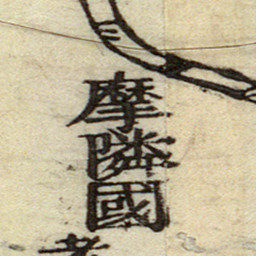 摩隣國